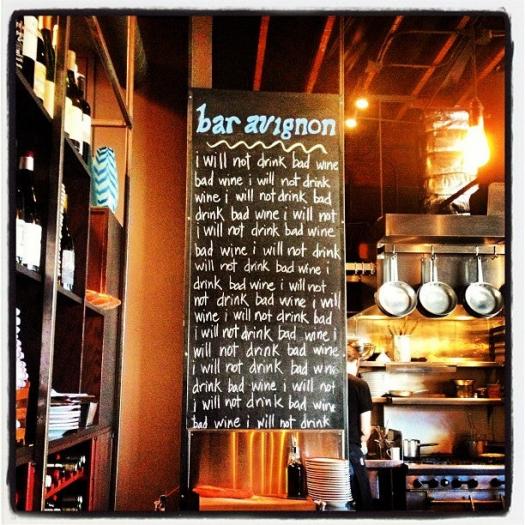 bar avignon
i will not drink bad wine
bad wine i will not drink
wine i will not drink bad
drink bad wine i will not
i will not drink bad wine
bad wine i will not drink
will not drink bad wine i
drink bad wine i will not
not drink bad wine i will
wine i will not drink bad
i will not drink bad wine i
will not drink bad wine.
i will not drink bad wine
drink bad wine i will not
i will not drink bad wine
bad wine i will not drink